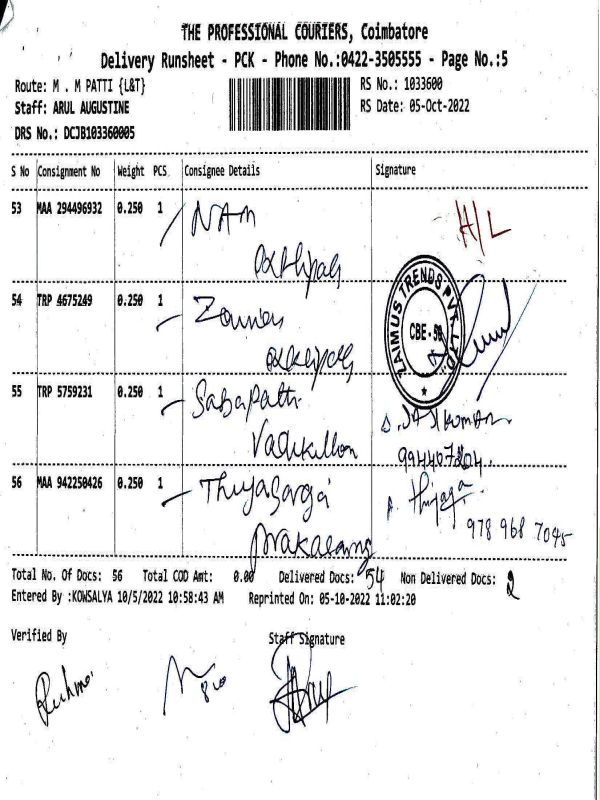 THE PROFESSIONAL COURIERS, Coimbatore
Delivery Runsheet - PCK - Phone No.:0422-3505555 - Page No.:5
Route: M . M PATTI {L&T} RS No.: 1033600
Staff: ARUL AUGUSTINE RS Date: 05-Oct-2022
DRS No.: DCJB103360005
S No Consignment No Weight PCS Consignee Details Signature
53 MAA 294496932 0.250 1 NAM H/L
54 TRP 4675249 0.250 1
ZAIMUS TRENDS PVT. LTD.
CBE-
55 TRP 5759231 0.250 1 Sabapathi
56 MAA 942250426 0.250 1 Thiyagaraja
978 968 7045
Total No. Of Docs: 56 Total COD Amt: 0.00 Delivered Docs: 54 Non Delivered Docs: 2
Entered By :KOWSALYA 10/5/2022 10:58:43 AM Reprinted On: 05-10-2022 11:02:20
Verified By Staff Signature